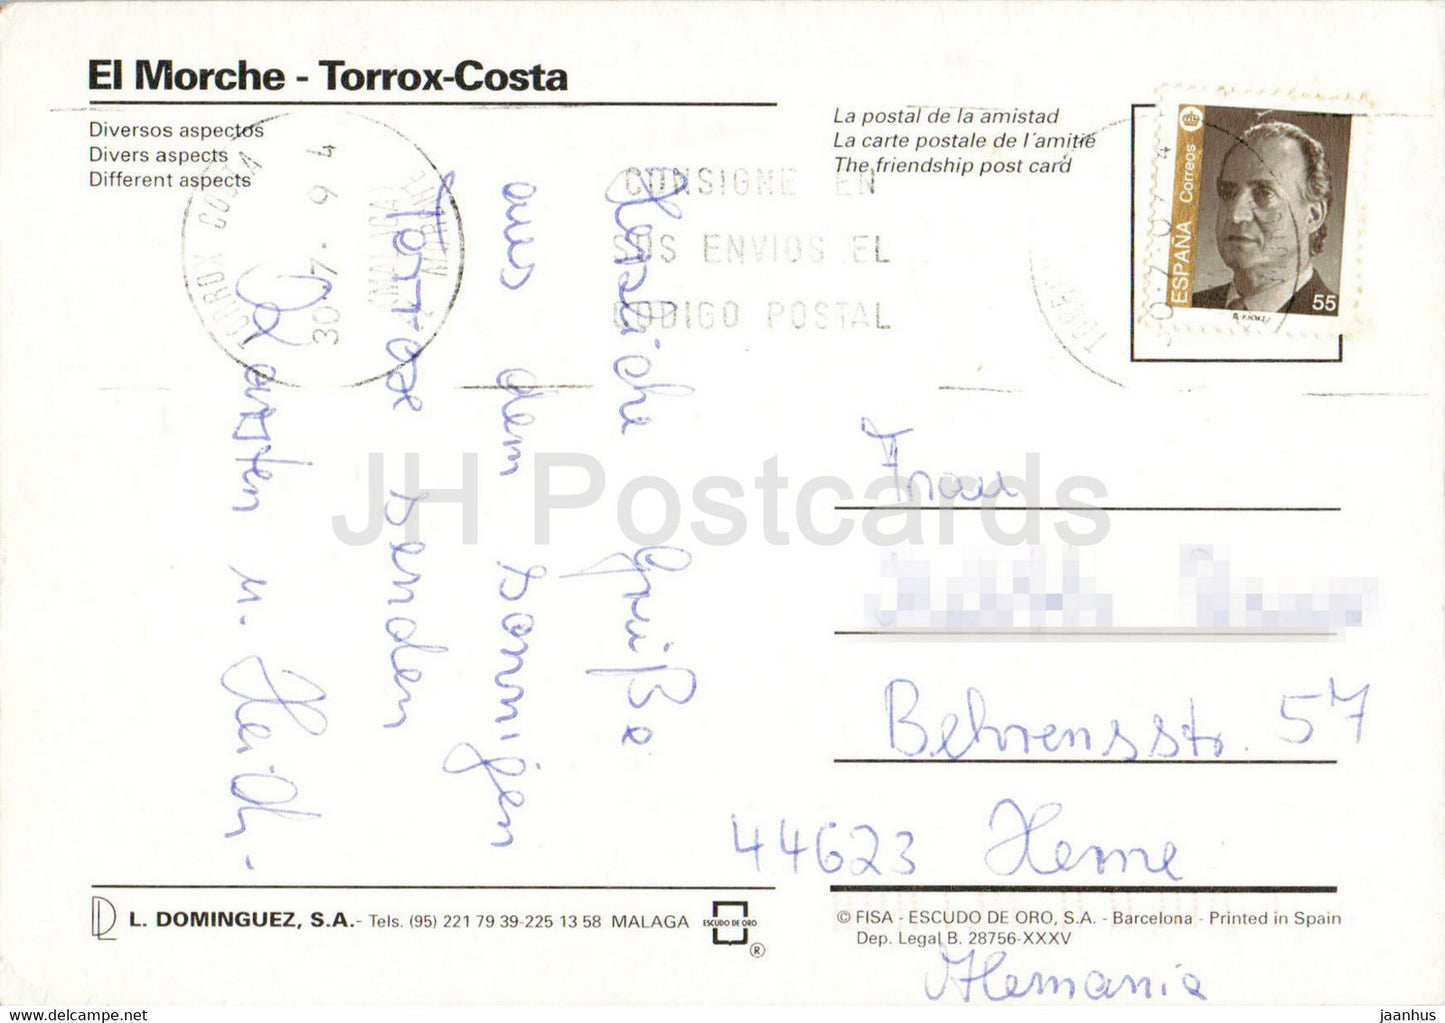 El Morche - Torrox-Costa
Diversos aspectos
Divers aspects
Different aspects
La postal de la amistad
La carte postale de l´amitié
The friendship post card
TORROX COSTA
30 7 9 4
(MALAGA)
CONSIGNE EN
SUS ENVIOS EL
CODIGO POSTAL
ESPAÑA Correos
55
Herzliche Grüße
aus dem sonnigen
Torrox senden
Karsten u. Heidi
Frau
Behrensstr. 57
44623 Herne
Alemania
L. DOMINGUEZ, S.A.- Tels. (95) 221 79 39-225 13 58 MALAGA
ESCUDO DE ORO
®
© FISA - ESCUDO DE ORO, S.A. - Barcelona - Printed in Spain
Dep. Legal B. 28756-XXXV
JH Postcards
jaanhus